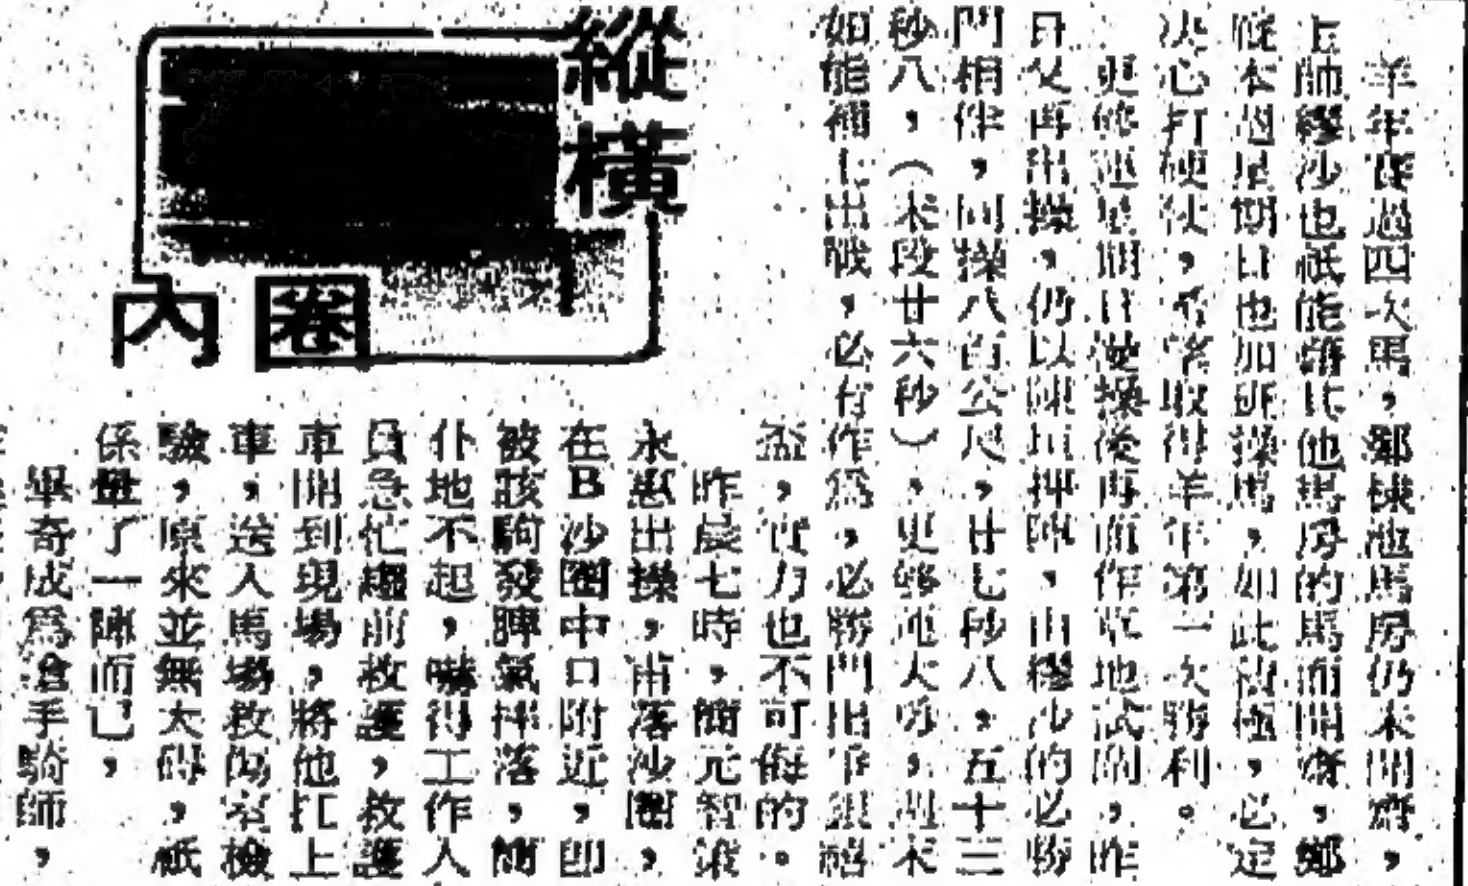 縱橫
圈內
羊年賽過四次馬,鄭棣池馬房仍未開齋,
上師繆沙也祇能替其他馬房的馬而開齋,鄭
棣本週星期日也加班操馬,如此積極,必定
決心打硬仗,希望取得羊年第一次勝利。
更爺連星期日速操後再而作草地試閘,昨
日又再出操,仍以陳坦押陣,由繆沙的必勝
門相伴,同操八百公尺,廿七秒八,五十三
秒八,(末段廿六秒),更爺地大勇,週末
如能補上出戰,必有作爲,必勝門出爭銀禧
盃,實力也不可侮的。
昨晨七時,簡元智策
永惠出操,甫落沙圈,
在B沙圈中口附近,即
被該駒發脾氣摔落,簡
仆地不起,嚇得工作人
員急忙趨前救護,救護
車開到現場,將他扛上
車,送入馬場救傷室檢
驗,原來並無大碍,祇
係暈了一陣而已,
畢奇成爲滄手騎師,